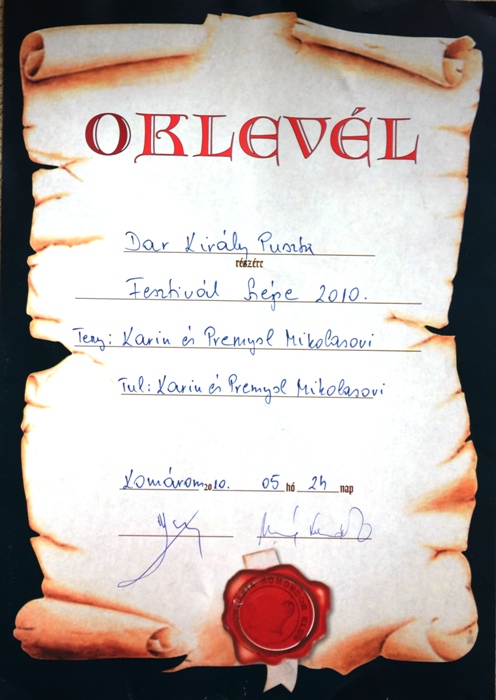 OKLEVÉL
Dar Király Puszta
részére
Fesztivál Szépe 2010.
Teny: Karin és Premysl Mikolasovi
Tul: Karin és Premysl Mikolasovi
Komárom 2010. 05 hó 24 nap